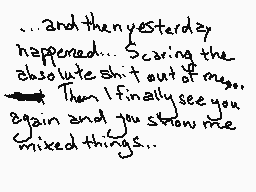 ...and then yesterday
happened... Scaring the
absolute shit out of me...
Then I finally see you
again and you show me
mixed things..